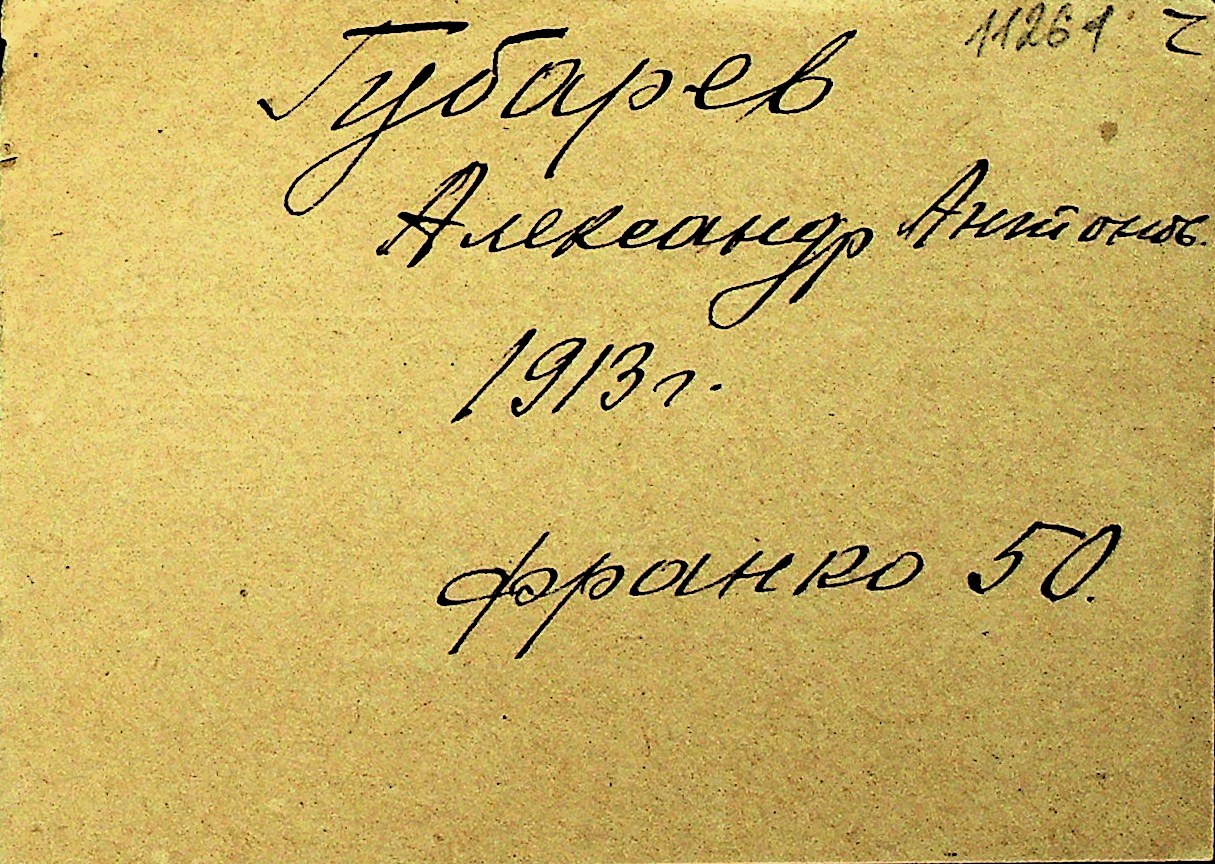 11261
Губарев
Александр Антонов.
1913 г.
Франко 50.